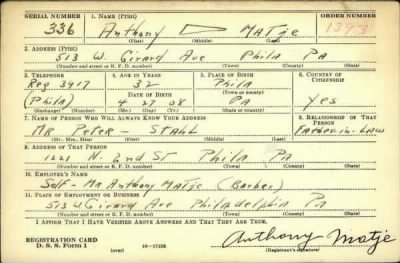 SERIAL NUMBER 1. NAME (Print) ORDER NUMBER
336 Anthony D Matje 1393
(First) (Middle) (Last)
2. ADDRESS (Print)
513 W. Girard Ave Phila Pa
(Number and street or R. F. D. number) (Town) (County) (State)
3. TELEPHONE 4. AGE IN YEARS 5. PLACE OF BIRTH 6. COUNTRY OF CITIZENSHIP
Reg 3917 32 Phila
(Town or county)
DATE OF BIRTH
(Phila) 4 27 08 Pa Yes
(Exchange) (Number) (Mo.) (Day) (Yr.) (State or country)
7. NAME OF PERSON WHO WILL ALWAYS KNOW YOUR ADDRESS 8. RELATIONSHIP OF THAT PERSON
Mr Peter - Stahl Father-in-Law
(Mr., Mrs., Miss) (First) (Middle) (Last)
9. ADDRESS OF THAT PERSON
1221 N. 2nd St Phila Pa
(Number and street or R. F. D. number) (Town) (County) (State)
10. EMPLOYER'S NAME
Self - Mr Anthony Matje (Barber)
11. PLACE OF EMPLOYMENT OR BUSINESS
513 W Girard Ave Philadelphia Pa
(Number and street or R. F. D. number) (Town) (County) (State)
I AFFIRM THAT I HAVE VERIFIED ABOVE ANSWERS AND THAT THEY ARE TRUE.
REGISTRATION CARD
D. S. S. Form 1 (over) 16-17105 Anthony Matje
(Registrant's signature)